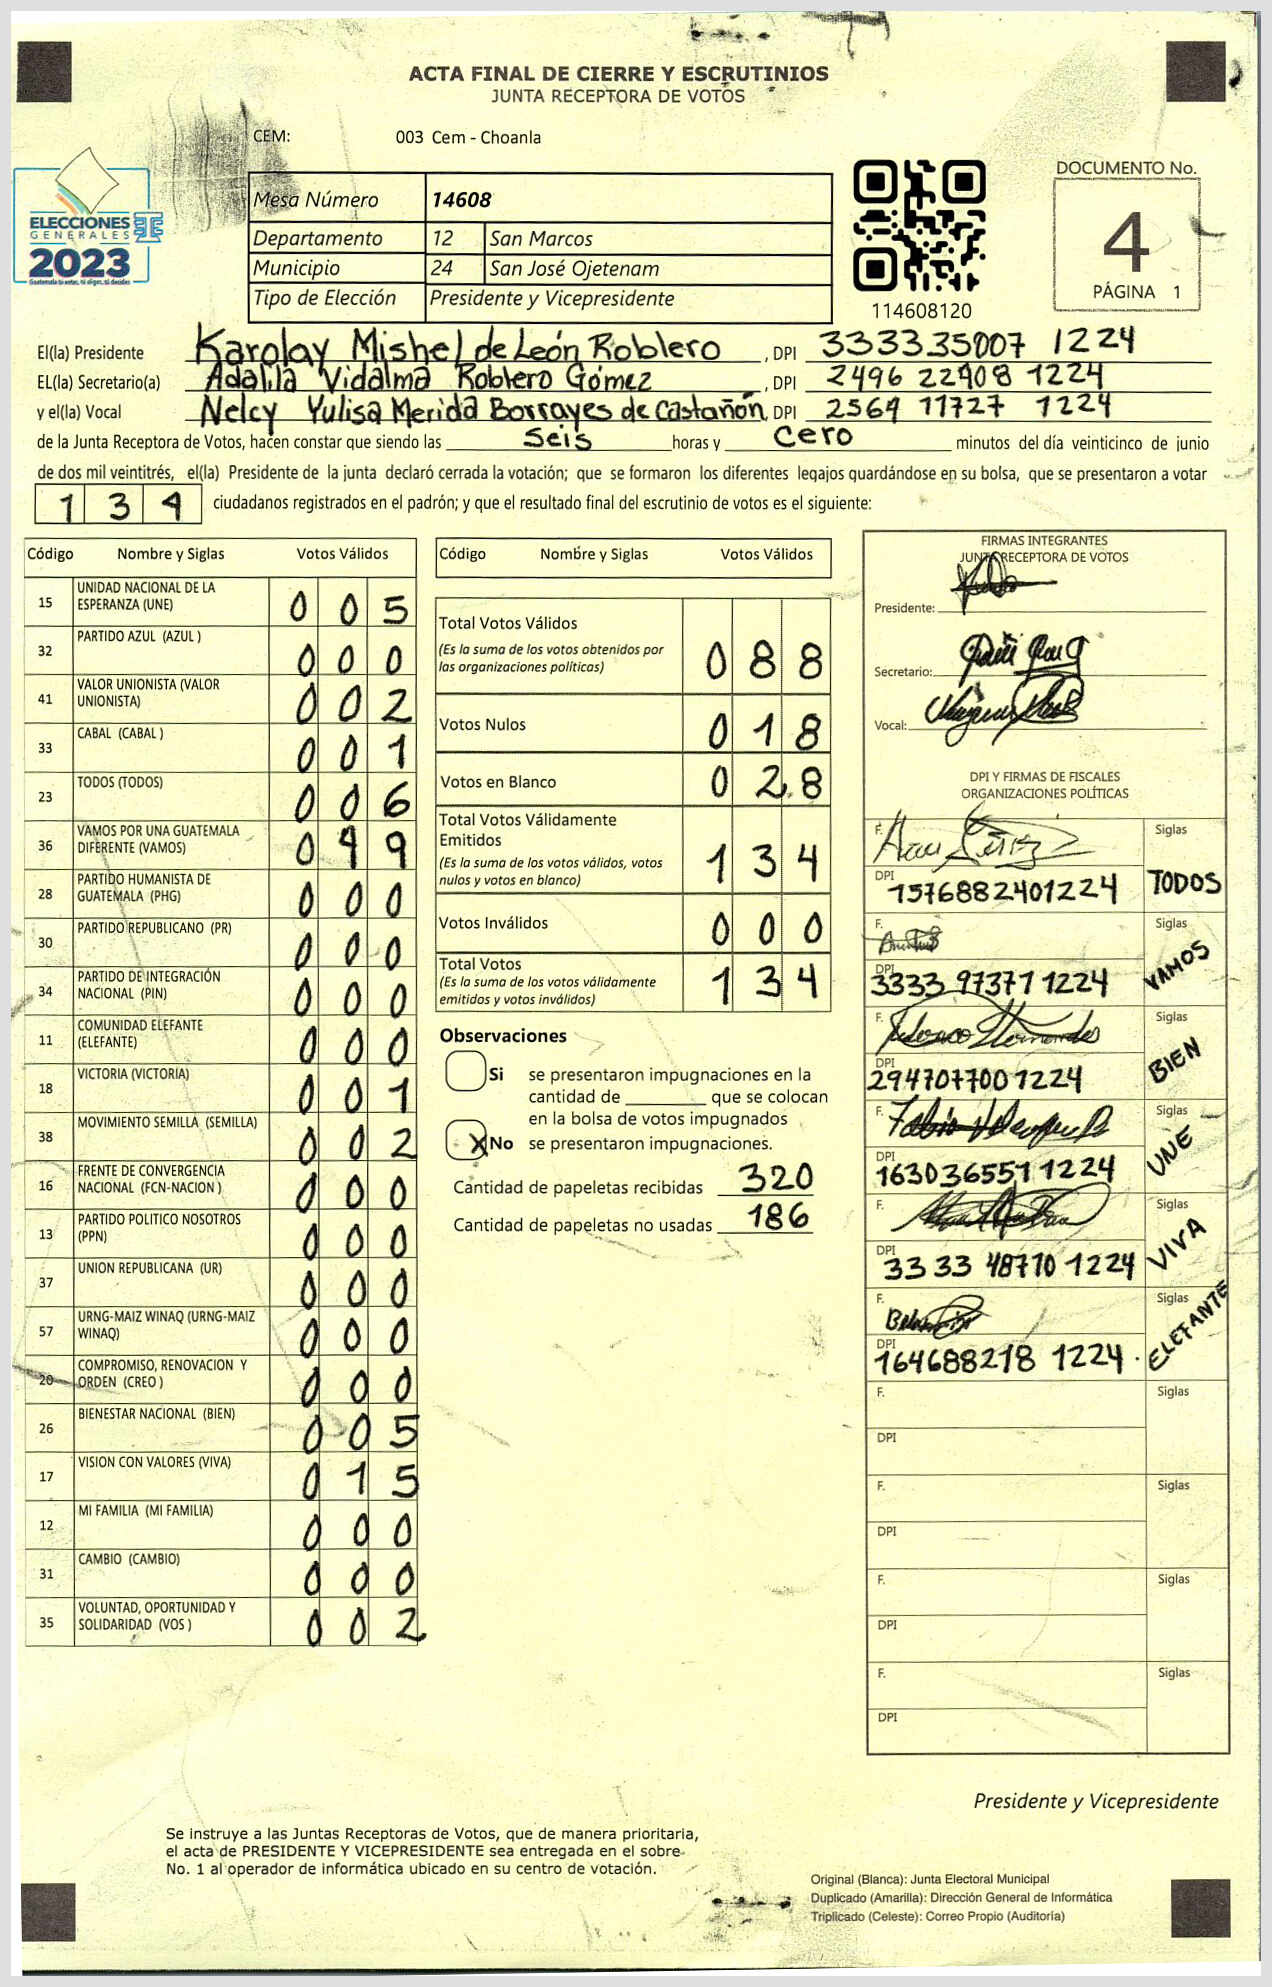 ACTA FINAL DE CIERRE Y ESCRUTINIOS
JUNTA RECEPTORA DE VOTOS
CEM: 003 Cem - Choanla
ELECCIONES
GENERALES
2023
Guatemala tu votas, tú eliges, tú decides
Mesa Número 14608
Departamento 12 San Marcos
Municipio 24 San José Ojetenam
Tipo de Elección Presidente y Vicepresidente
114608120
DOCUMENTO No.
4
PÁGINA 1
El(la) Presidente Karolay Mishel de León Roblero, DPI 333335007 1224
EL(la) Secretario(a) Adalila Vidalma Roblero Gómez, DPI 2496 22908 1224
y el(la) Vocal Nelcy Yulisa Merida Borrayes de Castañón, DPI 2569 11727 1224
de la Junta Receptora de Votos, hacen constar que siendo las seis horas y cero minutos del día veinticinco de junio
de dos mil veintitrés, el(la) Presidente de la junta declaró cerrada la votación; que se formaron los diferentes legajos guardándose en su bolsa, que se presentaron a votar
134 ciudadanos registrados en el padrón; y que el resultado final del escrutinio de votos es el siguiente:
Código Nombre y Siglas Votos Válidos
15 UNIDAD NACIONAL DE LA ESPERANZA (UNE) 005
32 PARTIDO AZUL (AZUL ) 000
41 VALOR UNIONISTA (VALOR UNIONISTA) 002
33 CABAL (CABAL ) 001
23 TODOS (TODOS) 006
36 VAMOS POR UNA GUATEMALA DIFERENTE (VAMOS) 099
28 PARTIDO HUMANISTA DE GUATEMALA (PHG) 000
30 PARTIDO REPUBLICANO (PR) 000
34 PARTIDO DE INTEGRACIÓN NACIONAL (PIN) 000
11 COMUNIDAD ELEFANTE (ELEFANTE) 000
18 VICTORIA (VICTORIA) 001
38 MOVIMIENTO SEMILLA (SEMILLA) 002
16 FRENTE DE CONVERGENCIA NACIONAL (FCN-NACION ) 000
13 PARTIDO POLITICO NOSOTROS (PPN) 000
37 UNION REPUBLICANA (UR) 000
57 URNG-MAIZ WINAQ (URNG-MAIZ WINAQ) 000
20 COMPROMISO, RENOVACION Y ORDEN (CREO ) 000
26 BIENESTAR NACIONAL (BIEN) 005
17 VISION CON VALORES (VIVA) 015
12 MI FAMILIA (MI FAMILIA) 000
31 CAMBIO (CAMBIO) 000
35 VOLUNTAD, OPORTUNIDAD Y SOLIDARIDAD (VOS ) 002
Código Nombre y Siglas Votos Válidos
Total Votos Válidos 088
(Es la suma de los votos obtenidos por
las organizaciones políticas)
Votos Nulos 018
Votos en Blanco 028
Total Votos Válidamente
Emitidos 134
(Es la suma de los votos válidos, votos
nulos y votos en blanco)
Votos Inválidos 000
Total Votos 134
(Es la suma de los votos válidamente
emitidos y votos inválidos)
Observaciones
Si se presentaron impugnaciones en la
cantidad de ________ que se colocan
en la bolsa de votos impugnados
X No se presentaron impugnaciones.
Cantidad de papeletas recibidas 320
Cantidad de papeletas no usadas 186
FIRMAS INTEGRANTES
JUNTA RECEPTORA DE VOTOS
Presidente:
Secretario:
Vocal:
DPI Y FIRMAS DE FISCALES
ORGANIZACIONES POLÍTICAS
F. Siglas
DPI 1576882401224 TODOS
F. Siglas
DPI 3333 97377 1224 VAMOS
F. Siglas
DPI 2947077001224 BIEN
F. Siglas
DPI 163036551 1224 UNE
F. Siglas
DPI 3333 48770 1224 VIVA
F. Siglas
DPI 164688218 1224. ELEFANTE
F. Siglas
DPI
F. Siglas
DPI
F. Siglas
DPI
F. Siglas
DPI
Presidente y Vicepresidente
Se instruye a las Juntas Receptoras de Votos, que de manera prioritaria,
el acta de PRESIDENTE Y VICEPRESIDENTE sea entregada en el sobre
No. 1 al operador de informática ubicado en su centro de votación.
Original (Blanca): Junta Electoral Municipal
Duplicado (Amarilla): Dirección General de Informática
Triplicado (Celeste): Correo Propio (Auditoría)